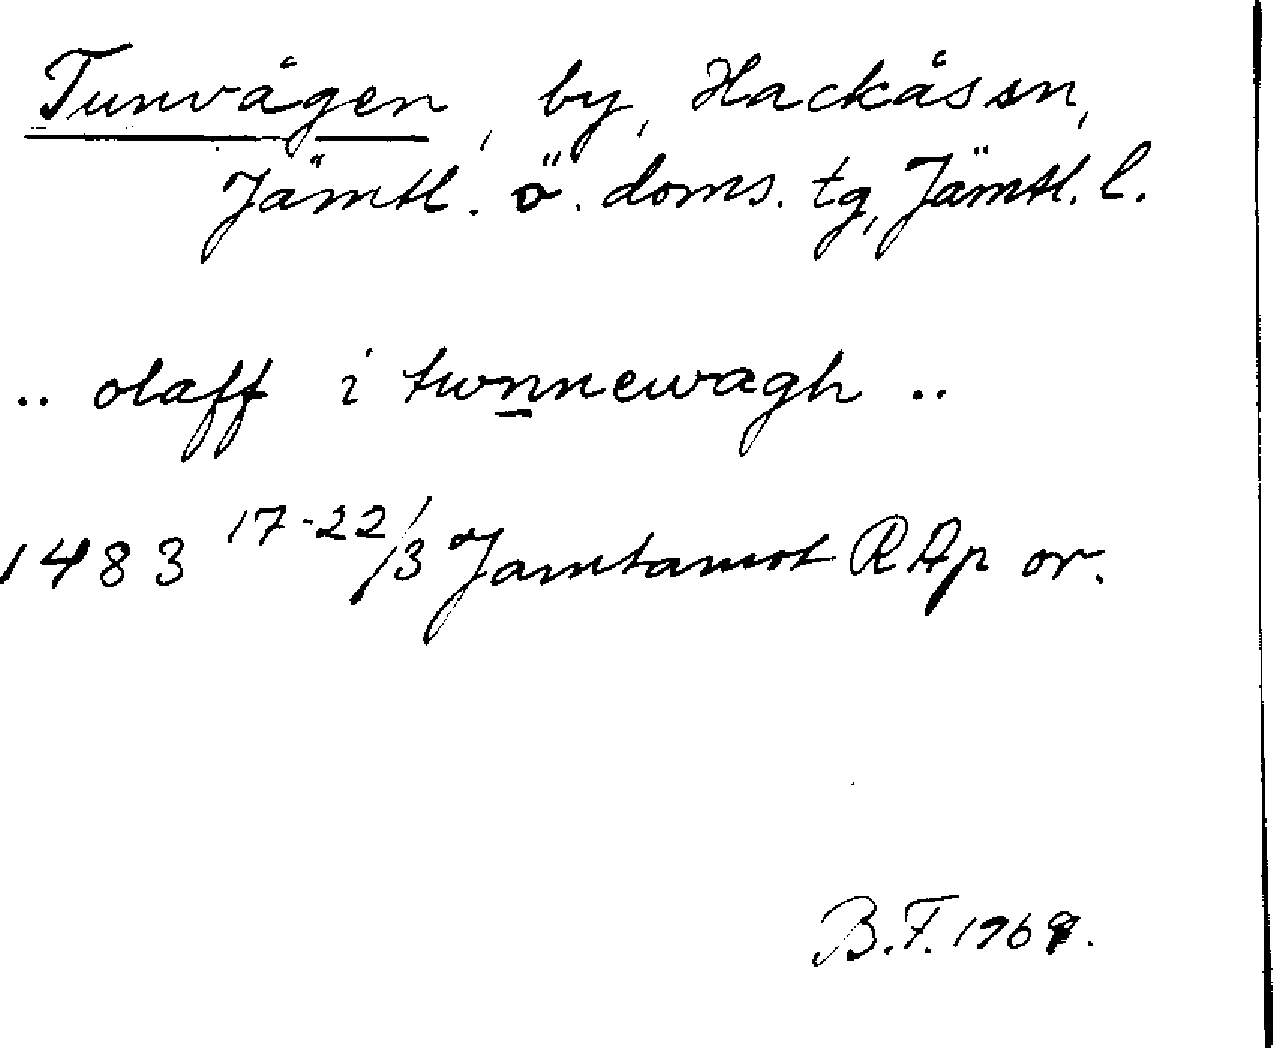 Tunvågen, by, Hackåssn,
Jämtl. ö. doms. tg, Jämtl. l.
.. olaff i twnnewagh ..
1483 17-22/3 Jamtamot RAp or.
B.F. 1969.